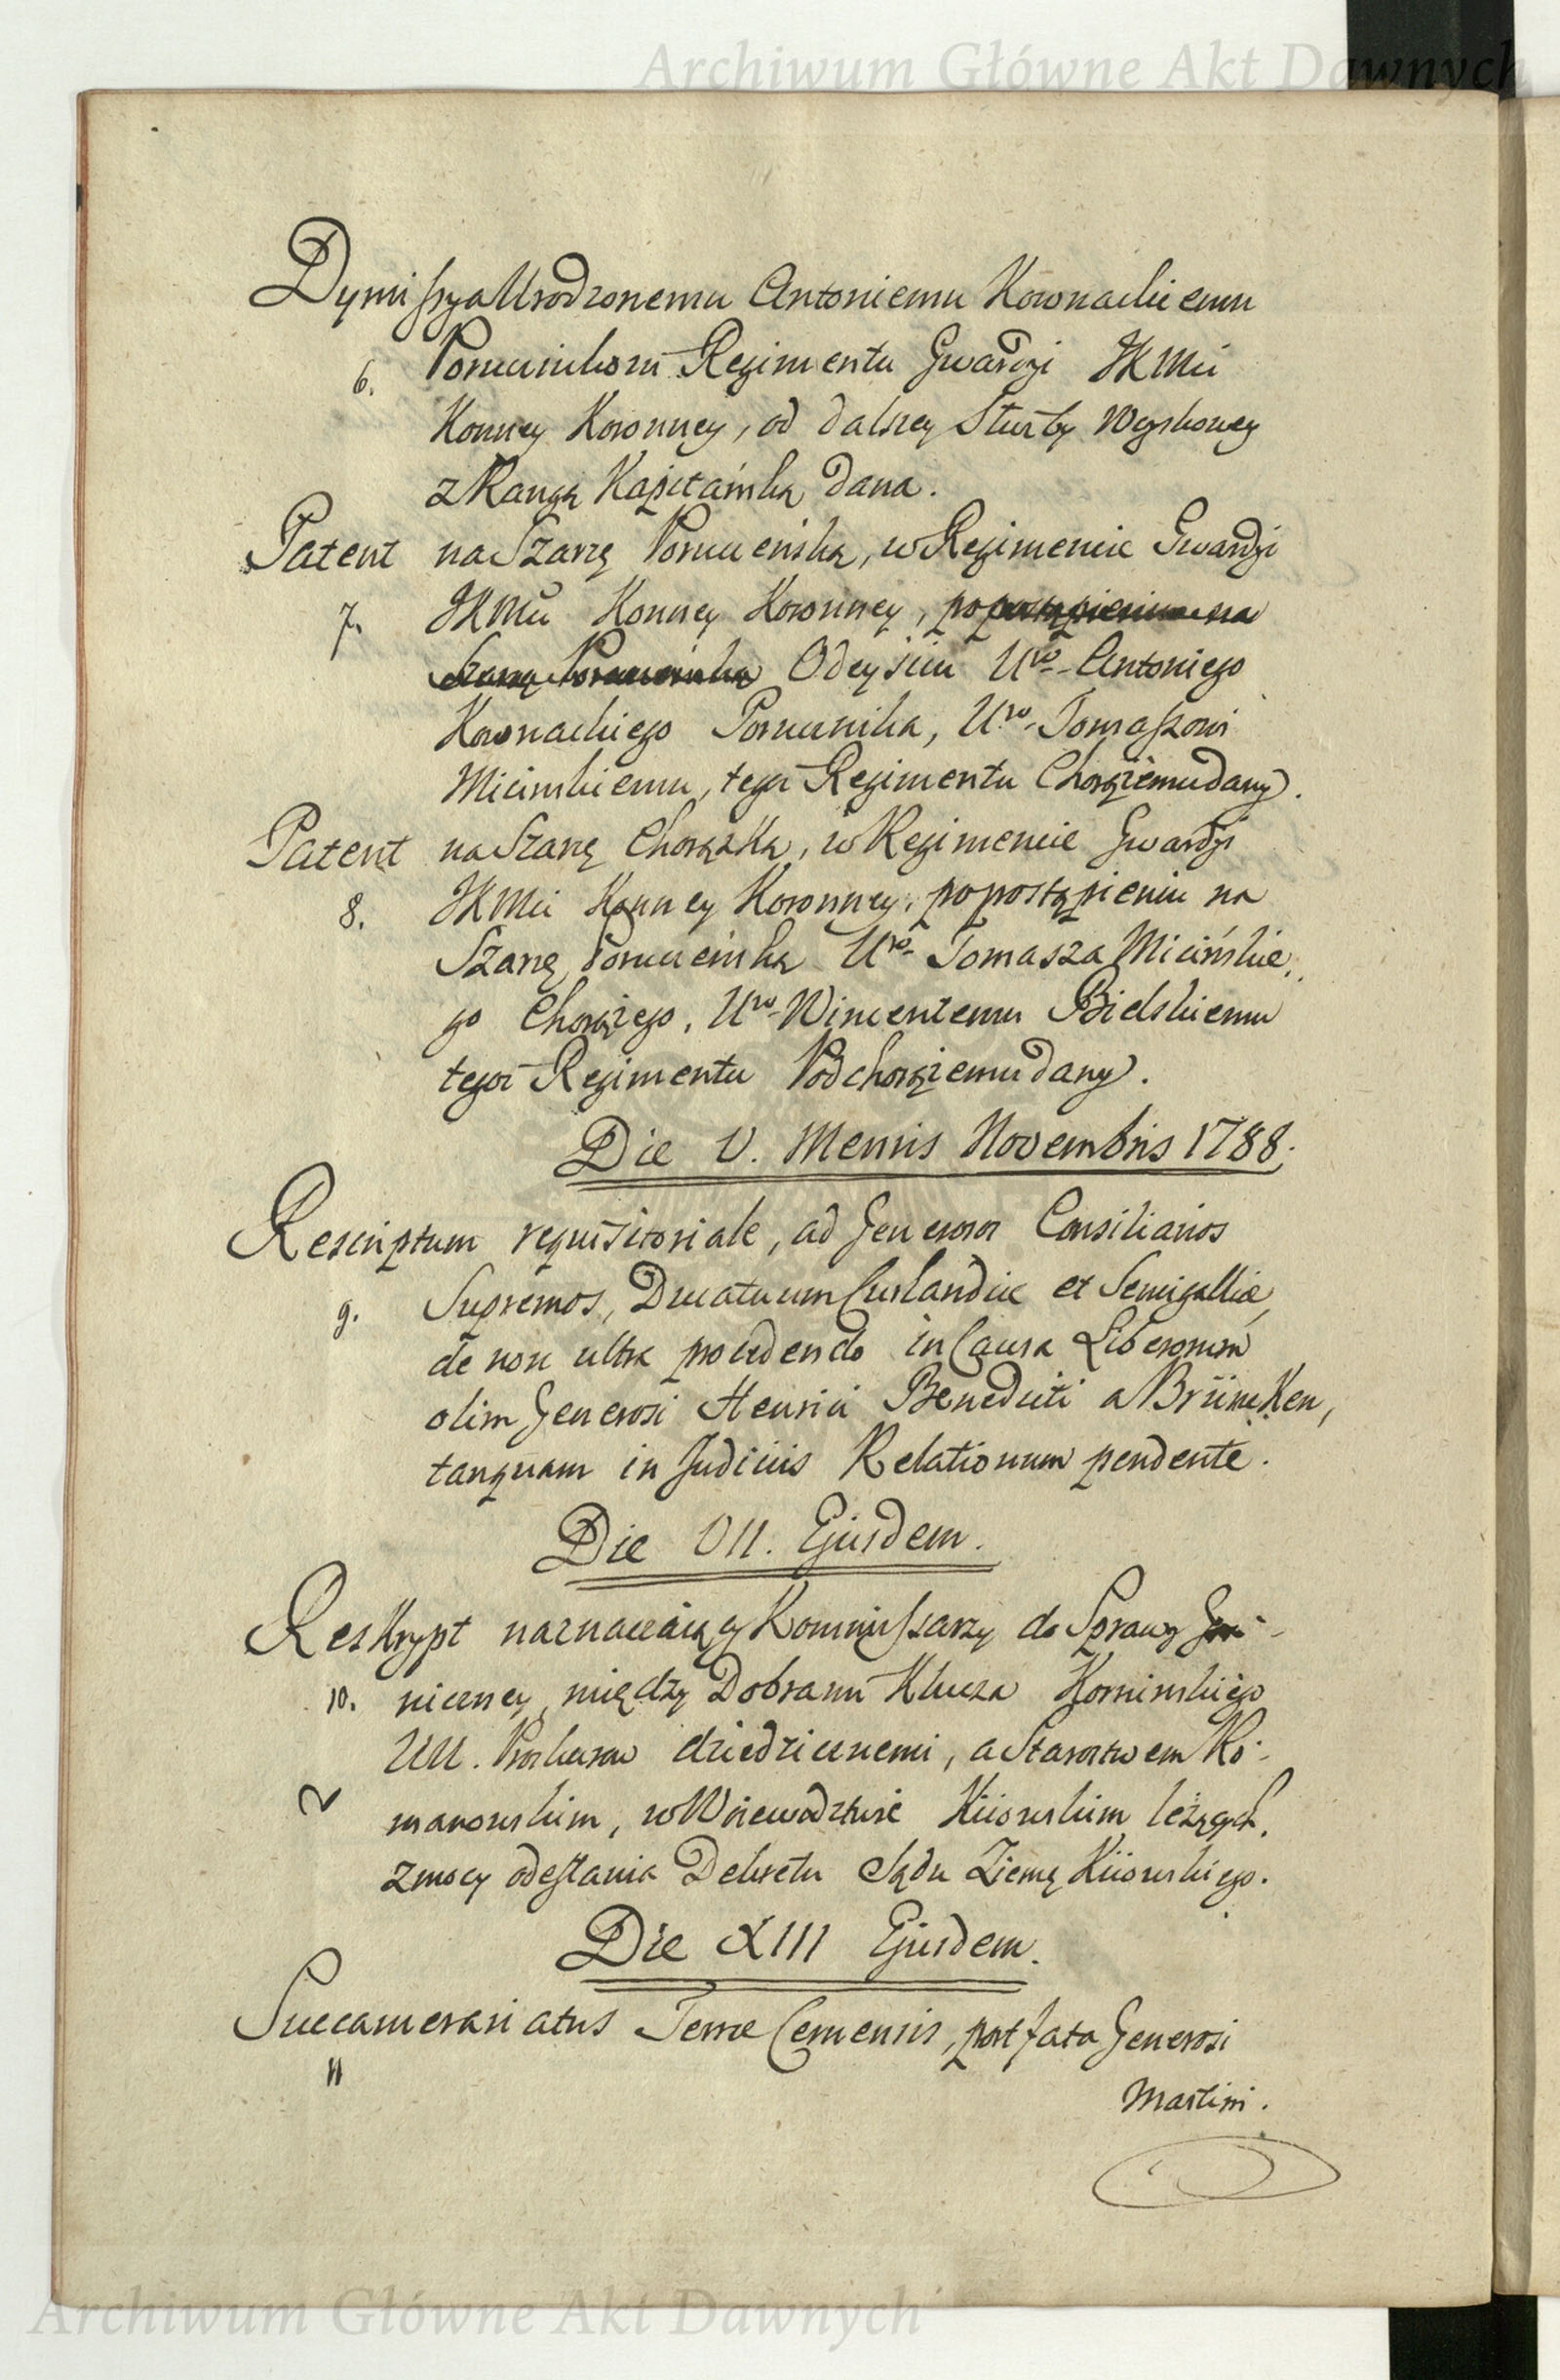 Archiwum Główne Akt Dawnych
Dymissya Urodzonemu Antoniemu Kownackiemu
6. Porucznikowi Regimentu Gwardyi JKMci
Konney Koronney, od dalszey Służby Woyskowey
z Rangą Kapitańską dana.
Patent na Szarżę Porucznińską, w Regimencie Gwardyi
7. JKMci Konney Koronney, po postąpieniu na
Szarżę Porucznińską Odeyściu Uro- Antoniego
Kownackiego Porucznika, Uro- Tomaszowi
Micinskiemu, tegoż Regimentu Chorążemu dany.
Patent na Szarżę Chorąską, w Regimencie Gwardyi
8. JKMci Konney Koronney, po postąpieniu na
Szarżę Porucznińską Uro- Tomasza Micińskie
go Chorążego, Uro- Wincentemu Bielskiemu
tegoż Regimentu Podchorążemu dany.
Die V. Mensis Novembris 1788.
Rescriptum requisitoriale, ad Generosos Consiliarios
9. Supremos, Ducatuum Curlandiæ et Semigalliæ,
de non ultra procedendo in Causa Liberorum
olim Generosi Henrici Benedicti a Brüncken,
tanquam in Judiciis Relationum pendente.
Die VII. Ejusdem.
Reskrypt naznaczaiący Kommissarzy do Sprawy Gra-
10. niczney, między Dobrami Klucza Kornińskiego
UU. dziedzicznemi, a Starostwem Ro-
manowskim, w Woiewództwie Kiiowskim leżących,
z mocy odesłania Dekretu Sądu Ziemę Kiiowskiego.
Die XIII Ejusdem.
Succamerariatus Terræ Cernensis, post fata Generosi
11
Martini.
Archiwum Główne Akt Dawnych